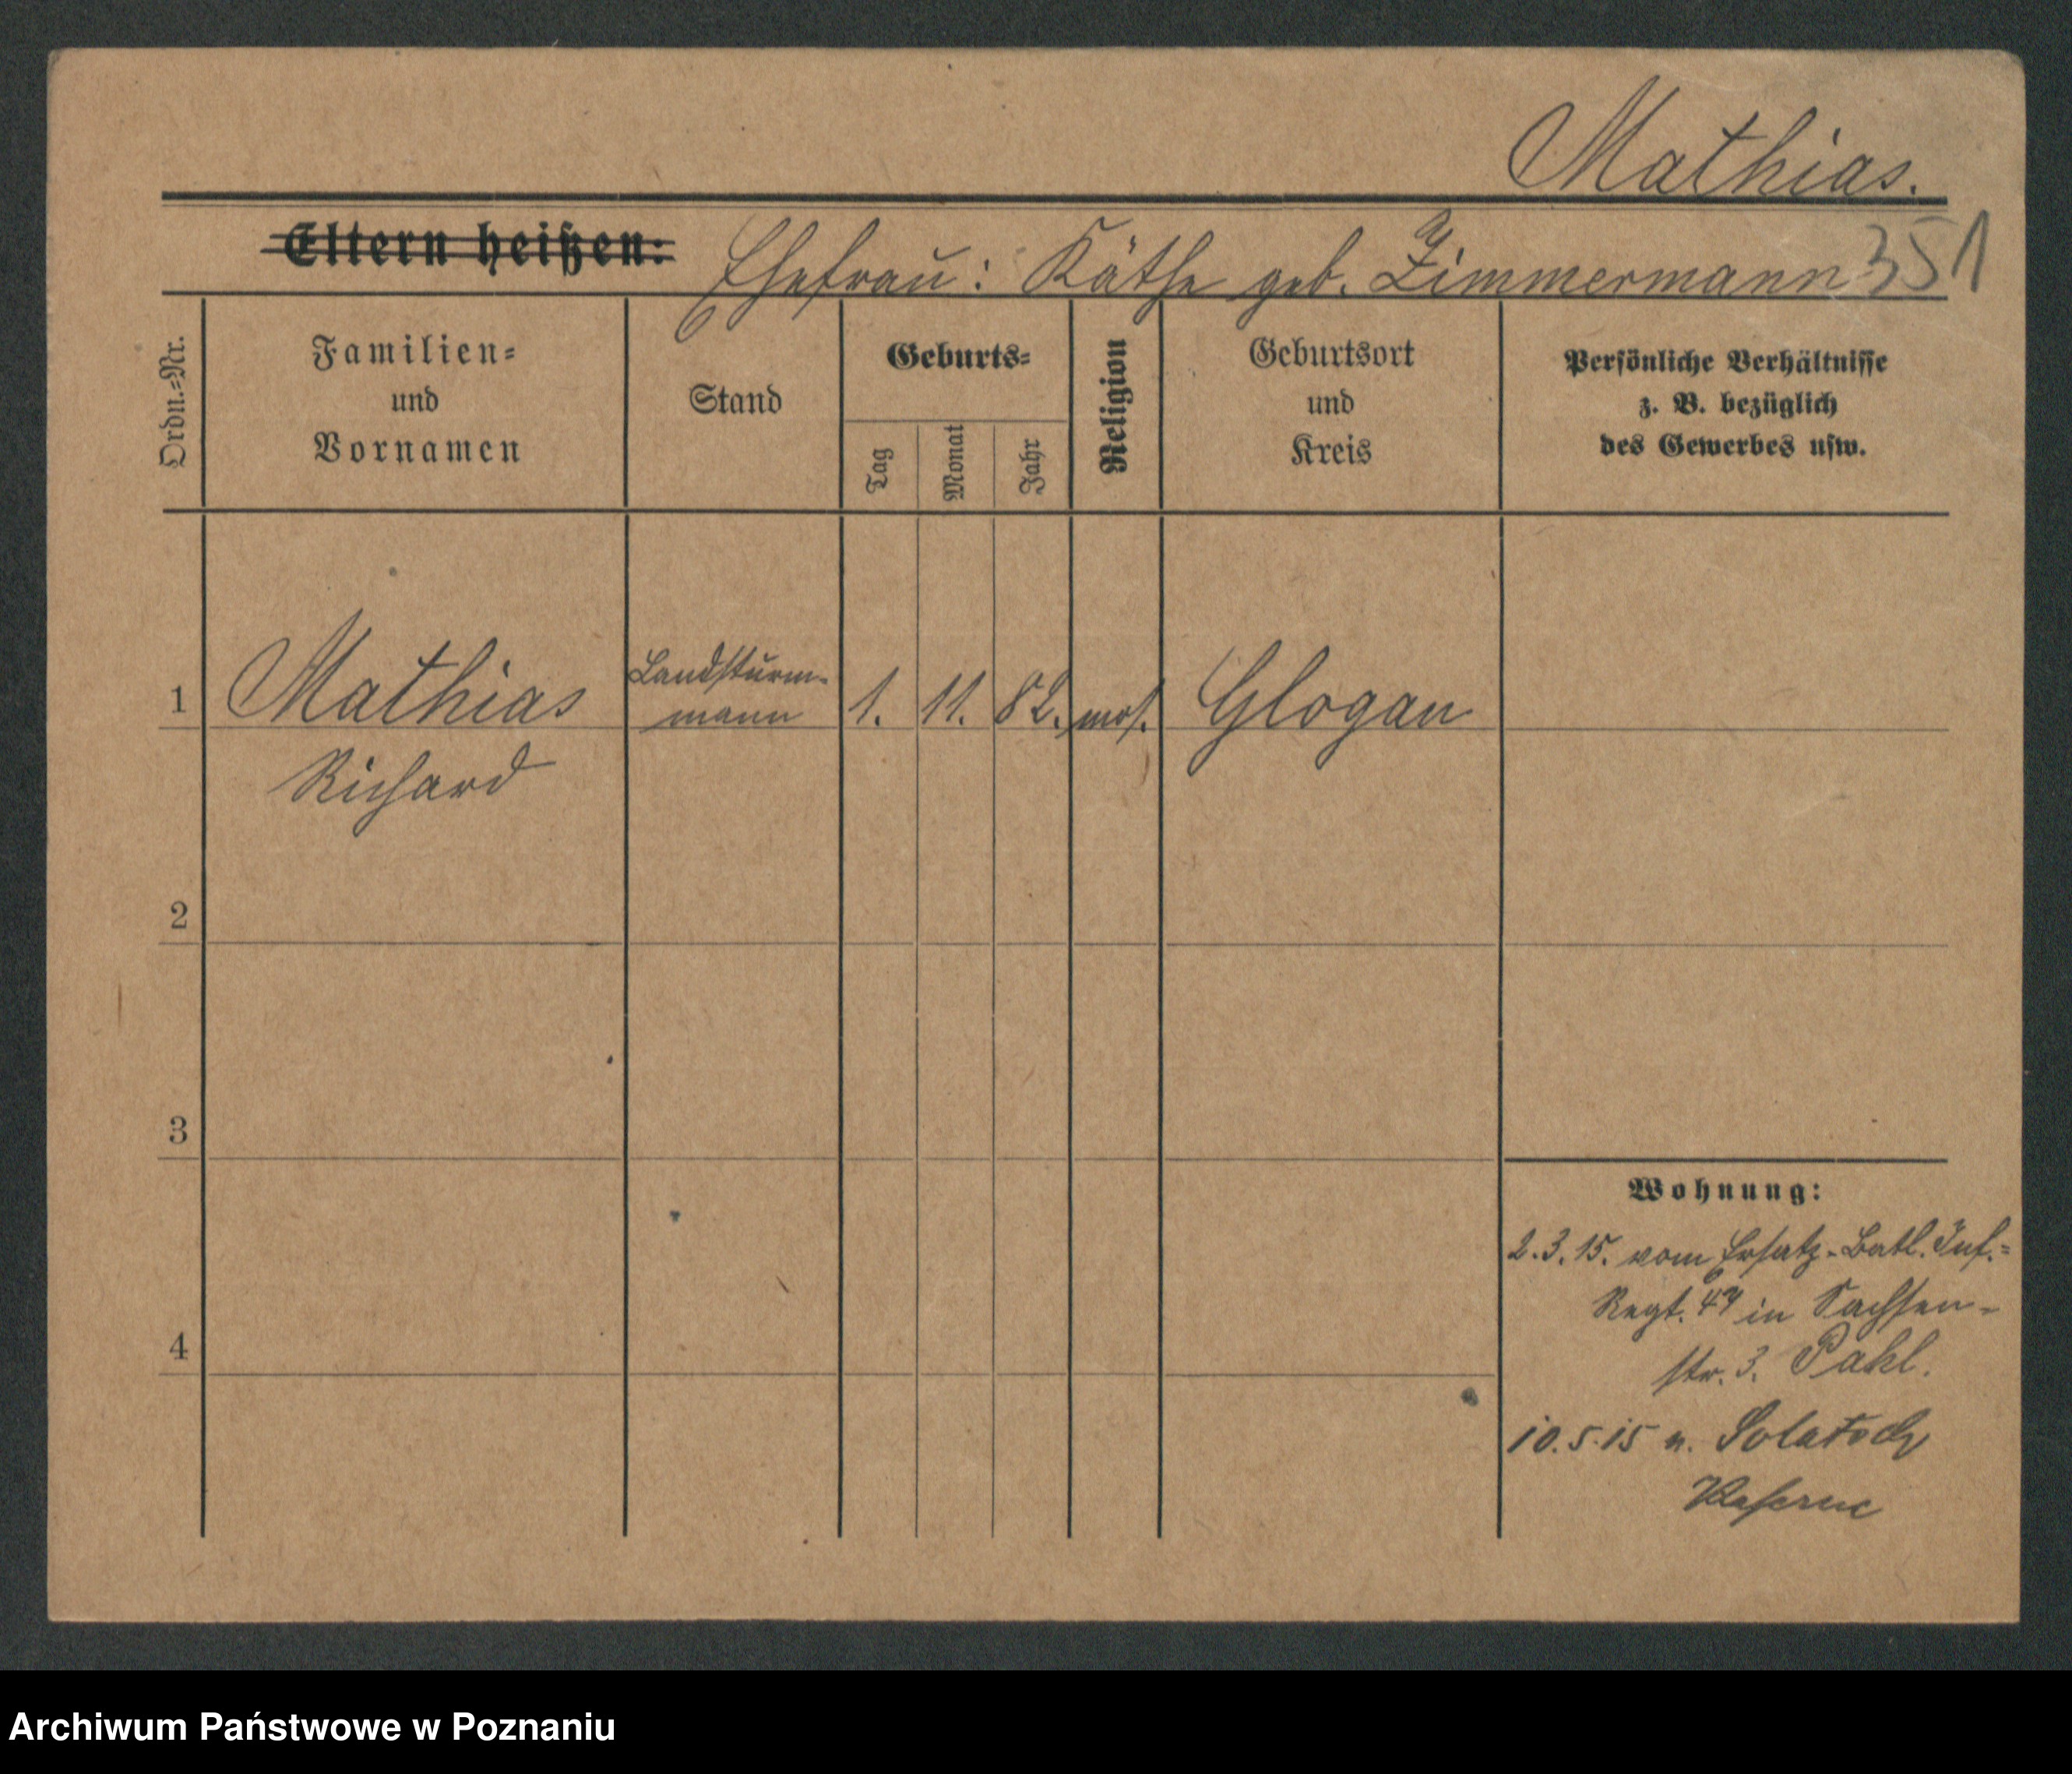 Mathias.
Eltern heißen: Ehefrau: Käthe geb. Zimmermann 351
Ordn.=Nr.
Familien=
und
Vornamen
Stand
Geburts=
Tag
Monat
Jahr
Religion
Geburtsort
und
Kreis
Persönliche Verhältnisse
z. B. bezüglich
des Gewerbes usw.
1 Mathias Landsturm-
mann 1. 11. 82. mos. Glogau
Richard
2
3
4
Wohnung:
2.3.15. vom Ersatz-Batl. Inf.=
Regt. 47 in Sachsen-
str. 3. Pahl.
10.5.15 n. Solatsch
Kaserne
Archiwum Państwowe w Poznaniu